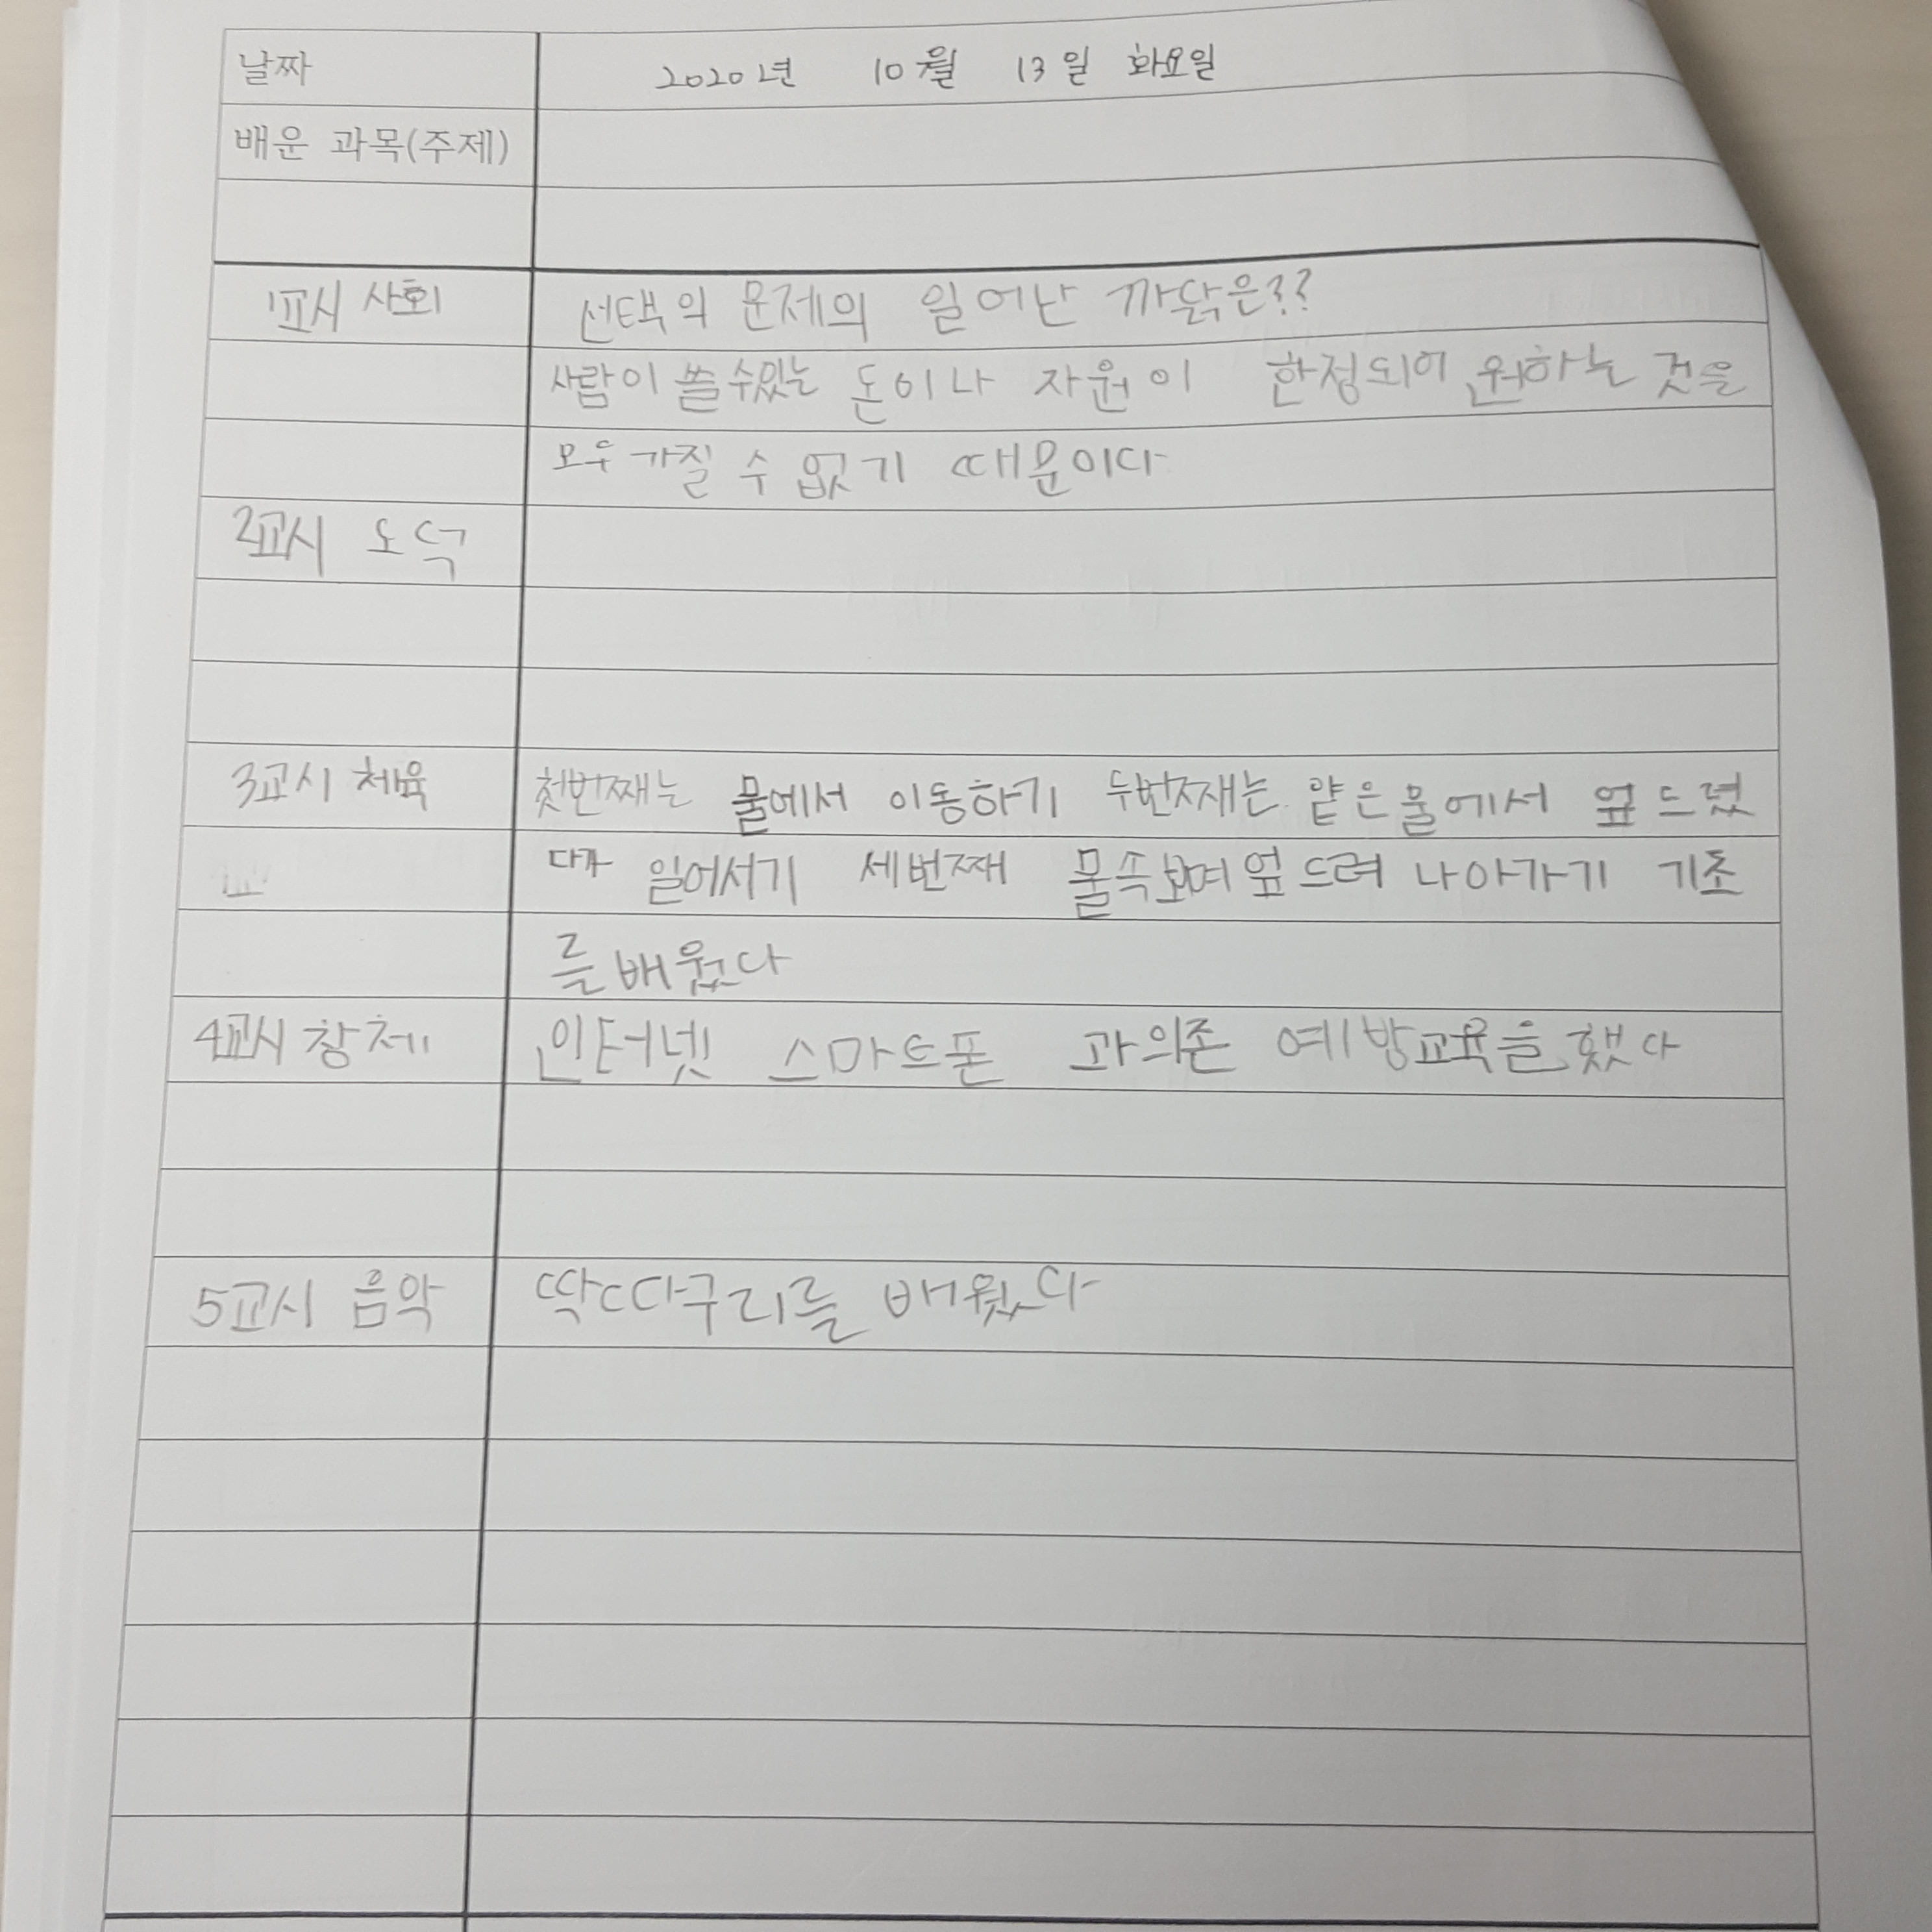 날짜 2020년 10월 13일 화요일
배운 과목(주제)
1교시 사회 선택의 문제의 일어난 까닭은??
사람이 쓸 수있는 돈이나 자원이 한정되어 원하는 것을
모두 가질 수 없기 때문이다
2교시 도덕
3교시 체육 첫번째는 물에서 이동하기 두번째는 얕은물에서 엎드렸
다가 일어서기 세번째 물속보며엎드려 나아가기 기초
를배웠다
4교시 창체 인터넷 스마트폰 과의존 예방교육을했다
5교시 음악 딱따구리를 배웠다